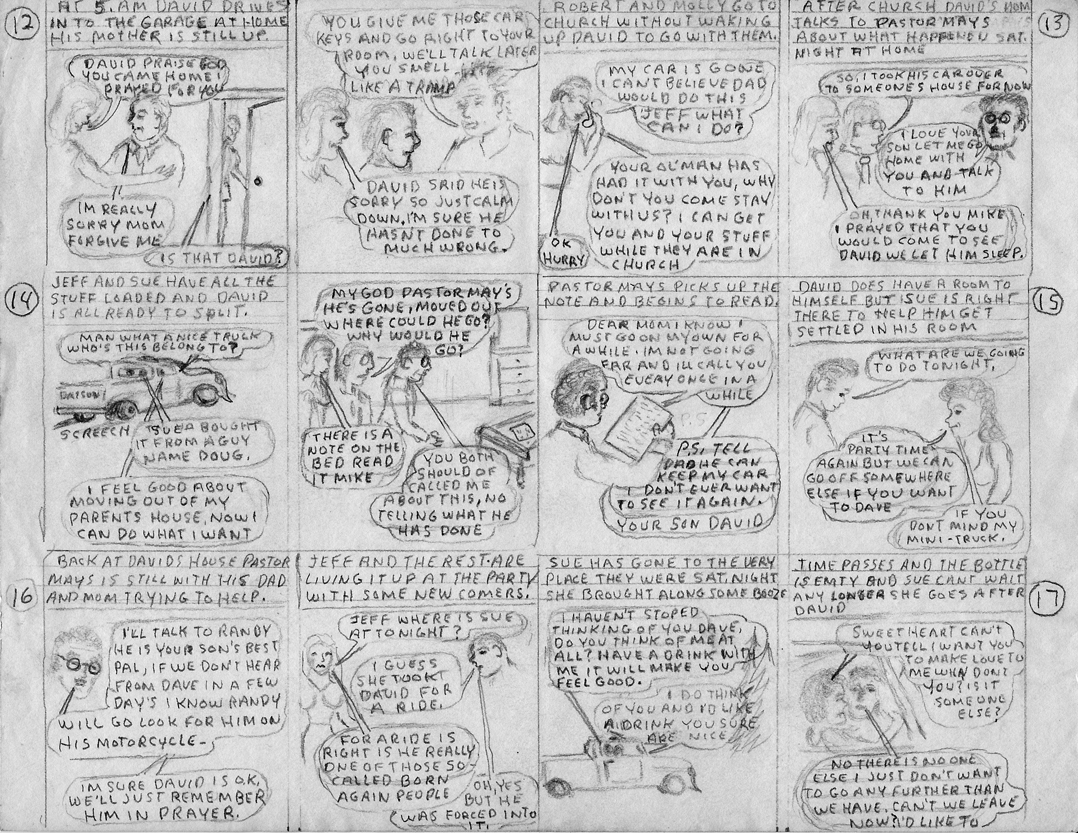 12
AT 5. AM DAVID DRIVES
INTO THE GARAGE AT HOME
HIS MOTHER IS STILL UP.
DAVID PRAISE GOD
YOU CAME HOME I
PRAYED FOR YOU
IM REALLY
SORRY MOM
FORGIVE ME
IS THAT DAVID?
YOU GIVE ME THOSE CAR
KEYS AND GO RIGHT TO YOUR
ROOM, WE'LL TALK LATER
YOU SMELL
LIKE A TRAMP
DAVID SAID HE IS
SORRY SO JUST CALM
DOWN. I'M SURE HE
HASN'T DONE TO
MUCH WRONG.
ROBERT AND MOLLY GO TO
CHURCH WITHOUT WAKING
UP DAVID TO GO WITH THEM.
MY CAR IS GONE
I CAN'T BELIEVE DAD
WOULD DO THIS
JEFF WHAT
CAN I DO?
YOUR OL' MAN HAS
HAD IT WITH YOU, WHY
DON'T YOU COME STAY
WITH US? I CAN GET
YOU AND YOUR STUFF
WHILE THEY ARE IN
CHURCH
OK
HURRY
13
AFTER CHURCH DAVID'S MOM
TALKS TO PASTOR MAYS
ABOUT WHAT HAPPENED SAT.
NIGHT AT HOME
SO, I TOOK HIS CAR OVER
TO SOMEONES HOUSE FOR NOW
I LOVE YOUR
SON LET ME GO
HOME WITH
YOU AND TALK
TO HIM
OH, THANK YOU MIKE
I PRAYED THAT YOU
WOULD COME TO SEE
DAVID WE LET HIM SLEEP.
14
JEFF AND SUE HAVE ALL THE
STUFF LOADED AND DAVID
IS ALL READY TO SPLIT.
MAN WHAT A NICE TRUCK
WHO'S THIS BELONG TO?
DATSUN
SCREECH
SUE BOUGHT
IT FROM A GUY
NAME DOUG.
I FEEL GOOD ABOUT
MOVING OUT OF MY
PARENTS HOUSE, NOW I
CAN DO WHAT I WANT
MY GOD PASTOR MAY'S
HE'S GONE, MOVED OUT
WHERE COULD HE GO?
WHY WOULD HE
GO?
THERE IS A
NOTE ON THE
BED READ
IT MIKE
YOU BOTH
SHOULD OF
CALLED ME
ABOUT THIS, NO
TELLING WHAT HE
HAS DONE
PASTOR MAYS PICKS UP THE
NOTE AND BEGINS TO READ.
DEAR MOM I KNOW I
MUST GO ON MY OWN FOR
A WHILE. IM NOT GOING
FAR AND ILL CALL YOU
EVERY ONCE IN A
WHILE
P.S. TELL
DAD HE CAN
KEEP MY CAR
I DON'T EVER WANT
TO SEE IT AGAIN.
YOUR SON DAVID
15
DAVID DOES HAVE A ROOM TO
HIMSELF BUT SUE IS RIGHT
THERE TO HELP HIM GET
SETTLED IN HIS ROOM
WHAT ARE WE GOING
TO DO TONIGHT,
IT'S
PARTY TIME
AGAIN BUT WE CAN
GO OFF SOMEWHERE
ELSE IF YOU WANT
TO DAVE
IF YOU
DONT MIND MY
MINI-TRUCK.
16
BACK AT DAVIDS HOUSE PASTOR
MAYS IS STILL WITH HIS DAD
AND MOM TRYING TO HELP.
I'LL TALK TO RANDY
HE IS YOUR SON'S BEST
PAL, IF WE DON'T HEAR
FROM DAVE IN A FEW
DAY'S I KNOW RANDY
WILL GO LOOK FOR HIM ON
HIS MOTORCYCLE-
IM SURE DAVID IS O.K.
WE'LL JUST REMEMBER
HIM IN PRAYER.
JEFF AND THE REST ARE
LIVING IT UP AT THE PARTY
WITH SOME NEW COMERS.
JEFF WHERE IS SUE
AT TONIGHT?
I GUESS
SHE TOOK
DAVID FOR
A RIDE.
FOR A RIDE IS
RIGHT IS HE REALLY
ONE OF THOSE SO-
CALLED BORN
AGAIN PEOPLE
OH, YES
BUT HE
WAS FORCED INTO
IT.
SUE HAS GONE TO THE VERY
PLACE THEY WERE SAT. NIGHT
SHE BROUGHT ALONG SOME BOOZE
I HAVEN'T STOPED
THINKING OF YOU DAVE,
DO YOU THINK OF ME AT
ALL? HAVE A DRINK WITH
ME IT WILL MAKE YOU
FEEL GOOD.
I DO THINK
OF YOU AND I'D LIKE
A DRINK YOU SURE
ARE NICE
17
TIME PASSES AND THE BOTTLE
IS EMTY AND SUE CANT WAIT
ANY LONGER SHE GOES AFTER
DAVID
SWEET HEART CAN'T
YOU TELL I WANT YOU
TO MAKE LOVE TO
ME WHY DON'T
YOU? IS IT
SOMEONE
ELSE?
NO THERE IS NO ONE
ELSE I JUST DON'T WANT
TO GO ANY FURTHER THAN
WE HAVE. CAN'T WE LEAVE
NOW? I'D LIKE TO